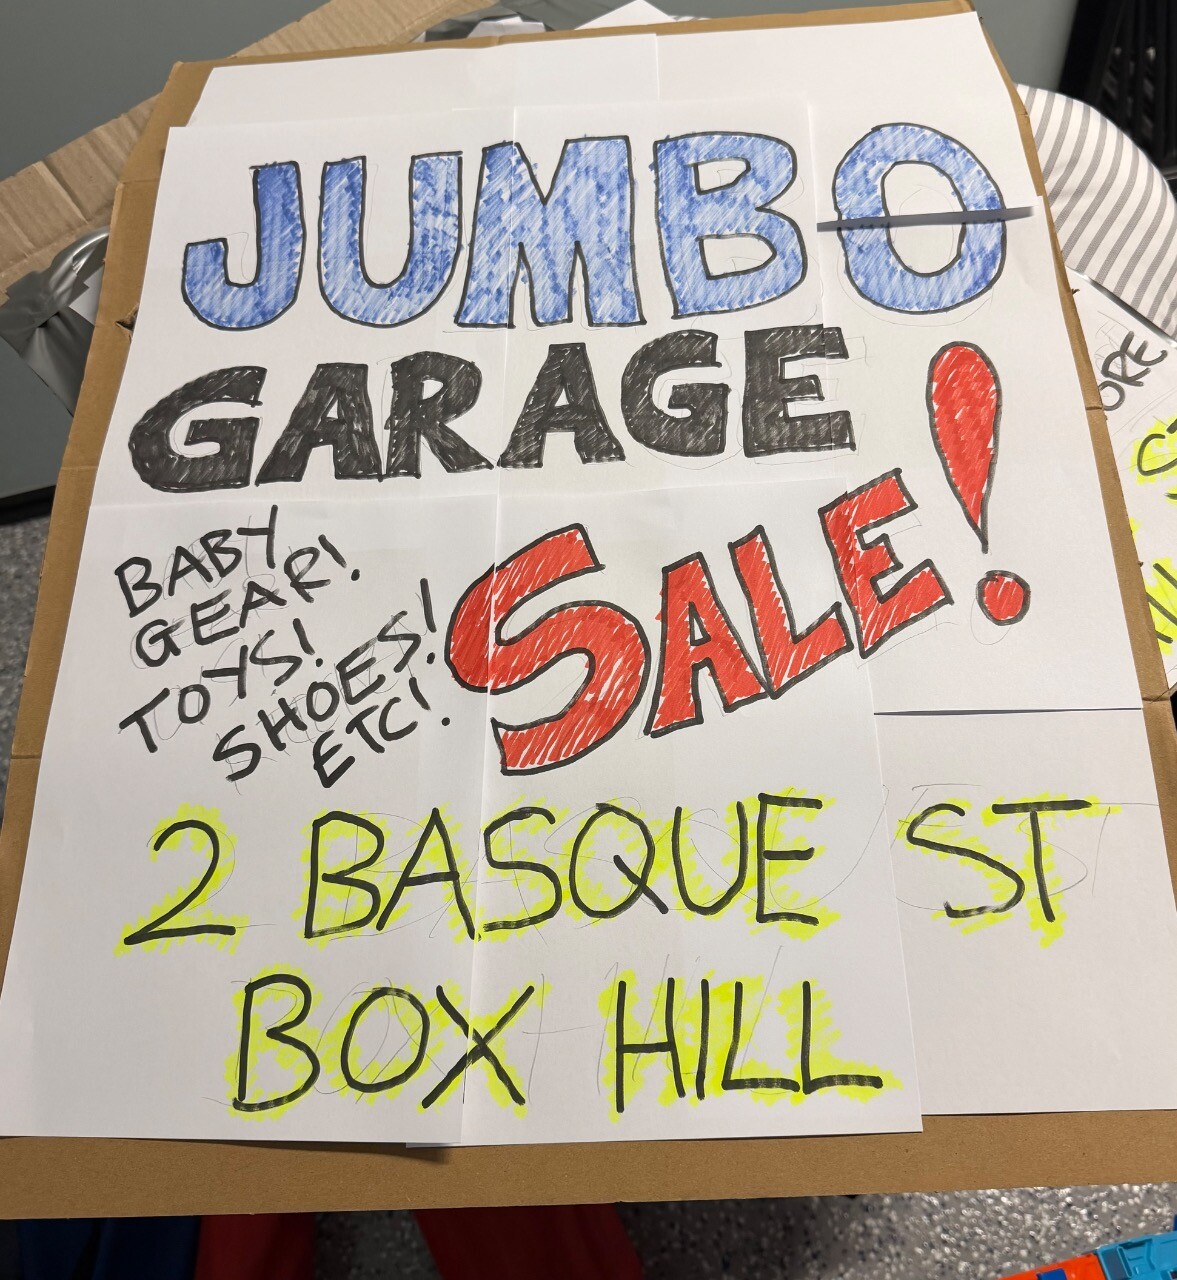 JUMBO
GARAGE
SALE!
BABY
GEAR!
TOYS!
SHOES!
ETC!
2 BASQUE ST
BOX HILL
ORE